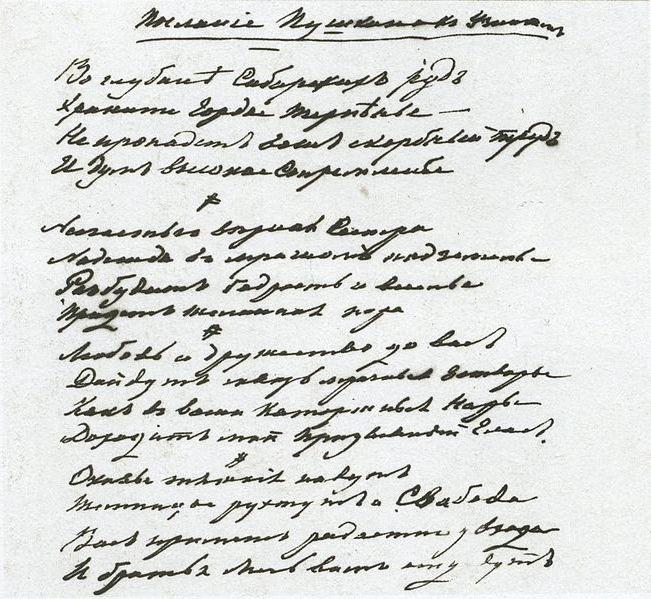 Посланіе Пушкина къ
Во глубинѣ Сибирскихъ рудъ
Храните гордое терпѣнье —
Не пропадетъ вашъ скорбный трудъ
И думъ высокое стремленье
Несчастью вѣрная сестра
Надежда въ мрачномъ подземельѣ
Разбудитъ бодрость и веселье
Придетъ желанная пора
Любовь и дружество до васъ
Дойдутъ сквозь мрачные затворы
Какъ въ ваши каторжные норы
Доходитъ мой призывный гласъ.
Оковы тяжкія падутъ
Темницы рухнутъ и Свабода
Васъ приметъ радостно у входа
И братья мечь вамъ отдадутъ